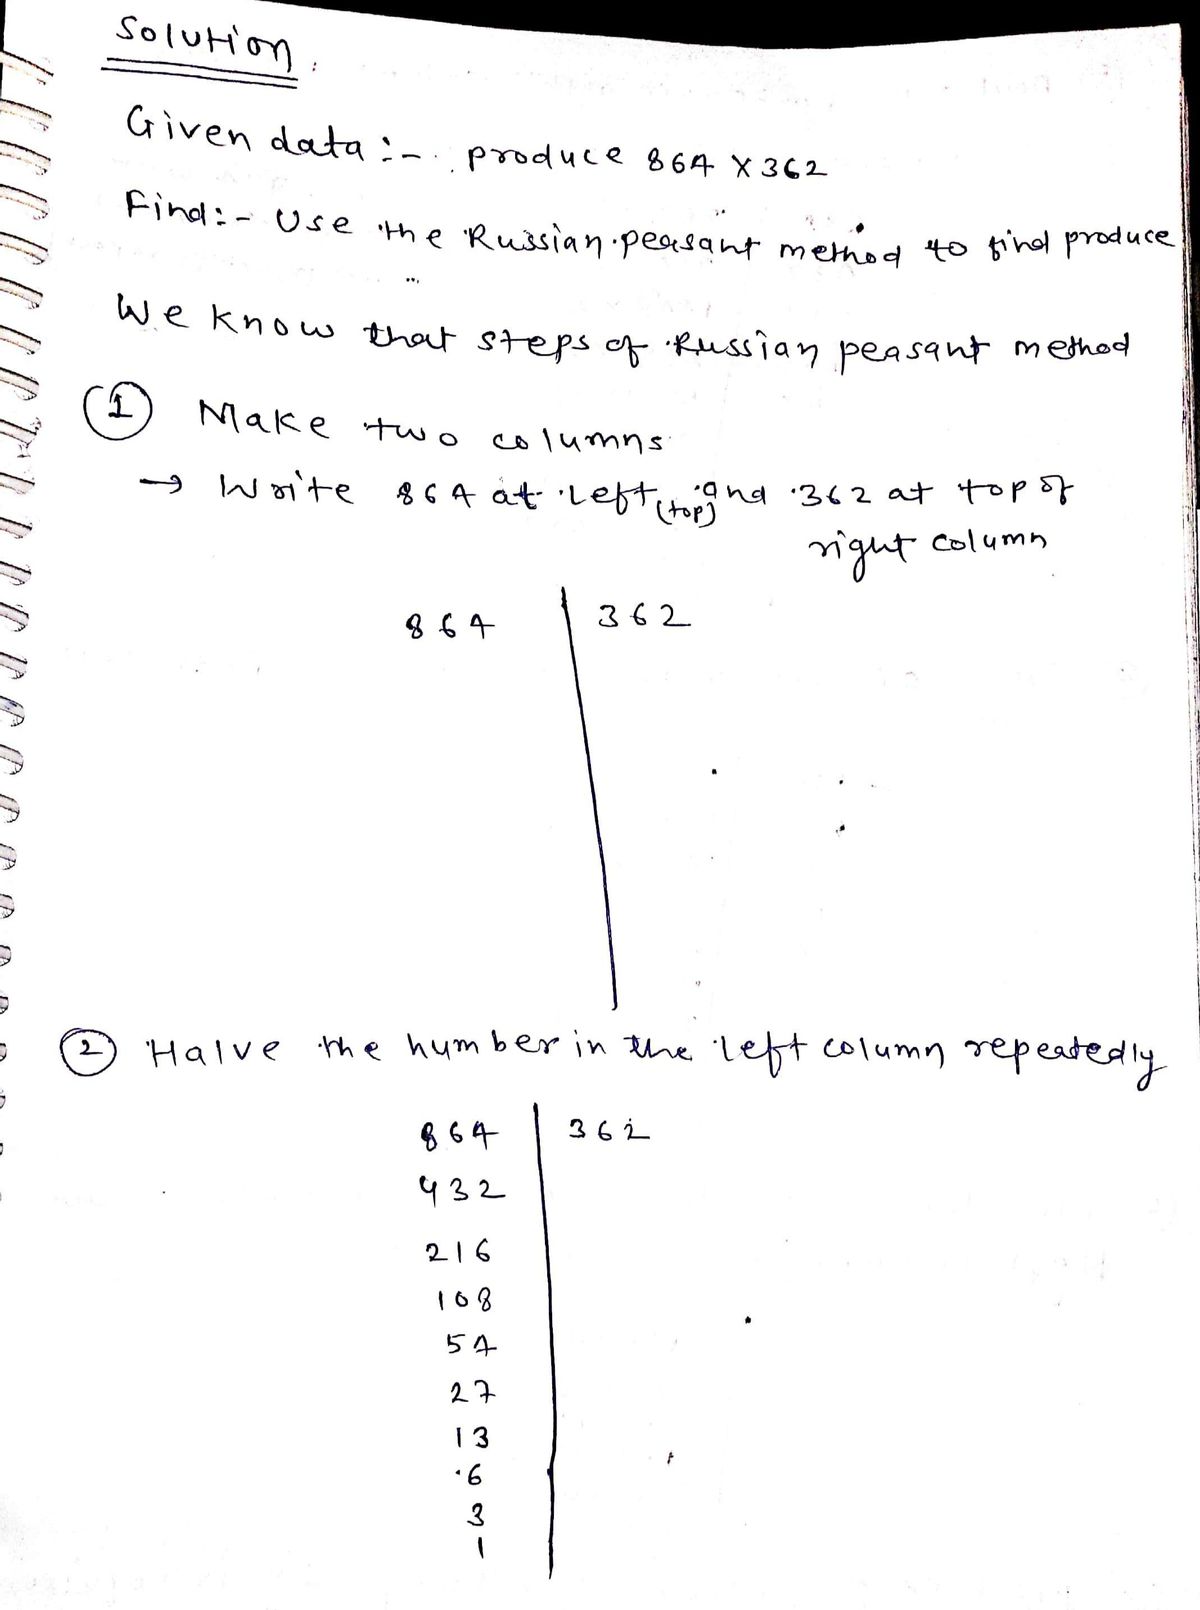 Solution :
Given data :- produce 864 X 362
Find :- Use the Russian peasant method to find produce
We know that steps of Russian peasant method
1 Make two columns
→ Write 864 at left (top) and 362 at top of
right column
864 | 362
2 Halve the number in the left column repeatedly
864 | 362
432
216
108
54
27
13
6
3
1